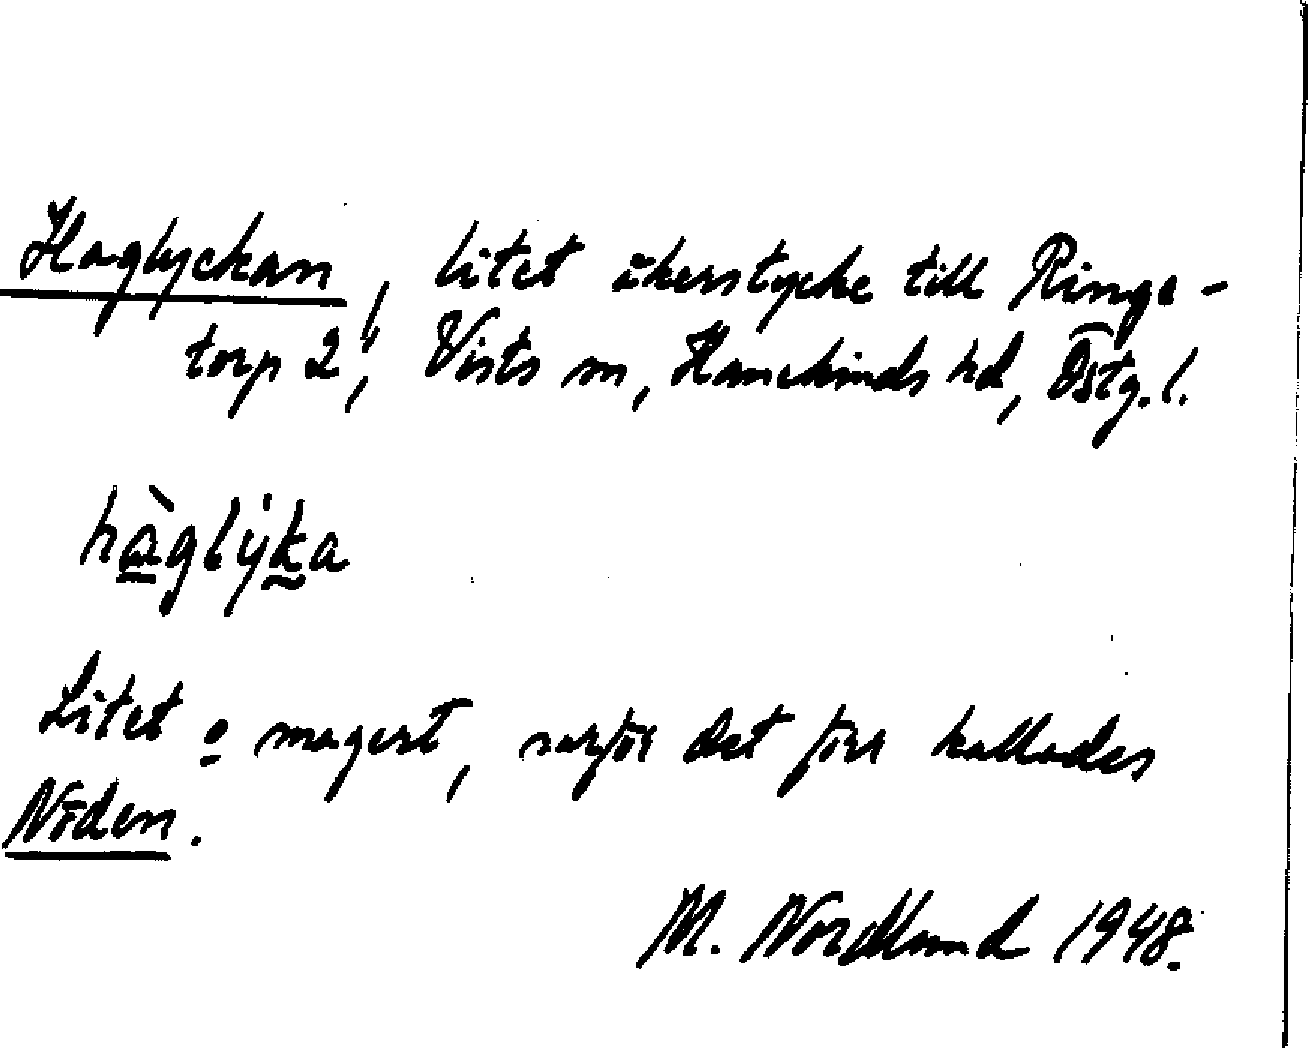 Haglyckan, litet åkerstycke till Ringe-
torp 2", Vists sn, Hanekinds hd, Östg. l.
hàglyka
Litet o magert, varför det förr kallades
Nöden.
M. Nordlund 1948.